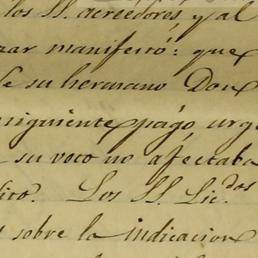 los SS. acreedores, y al
zar manifestó: que
de su hermano Don
nsiguiente pago, urg
su voto no afectaba
dico. Los SS. Lic.dos
sobre la indicacion